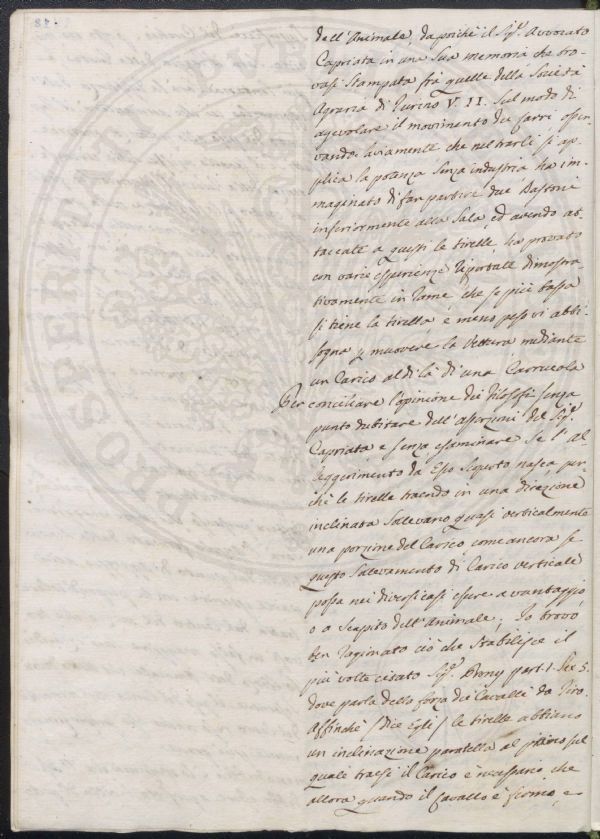 dell'Animale, dapoichè il Sig.r Avvocato
Capriata in una Sua memoria che tro
vasi Stampata frà quelle della Società
Agraria di Turino V. II. Sul modo di
agevolare il movimento dei Carri osser
vando, saviamente che nel trarli si ap
plica la potenza Senza industria ha im-
maginato di far partire due Bastoni
inferiormente alla Sala, ed avendo at
taccate a questi le tirelle, ha provato
con varie esperienze riportate dimostra
tivamente in Rame, che se più bassa
si tiene la tirella, e meno peso vi abbi-
sogna p muovere la Vettura mediante
un Carico al di là di una Carrucola
Per conciliare l'opinione dei Filosofi senza
punto dubitare dell'asserzioni del Sig.r
Capriata e senza esaminare se l'al
leggerimento da Esso Scoperto nasca per
chè le tirelle traendo in una direzione
inclinata Sollevano quasi verticalmente
una porzione del Carico come ancora se
questo Sollevamento di Carico verticale
possa nei diversi casi essere a vantaggio
o a Scapito dell'Animale; Io trovo
ben raginato ciò che Stabilisce il
più volte citato Sig.r Prony part. 1. Sez. 5.
dove parla della forza dei Cavalli da Tiro.
Affinchè / Dice Egli / le tirelle abbiano
un inclinazione paralella al piano sul
quale traesi il Carico è necessario che
allora quando il Cavallo è fermo, e